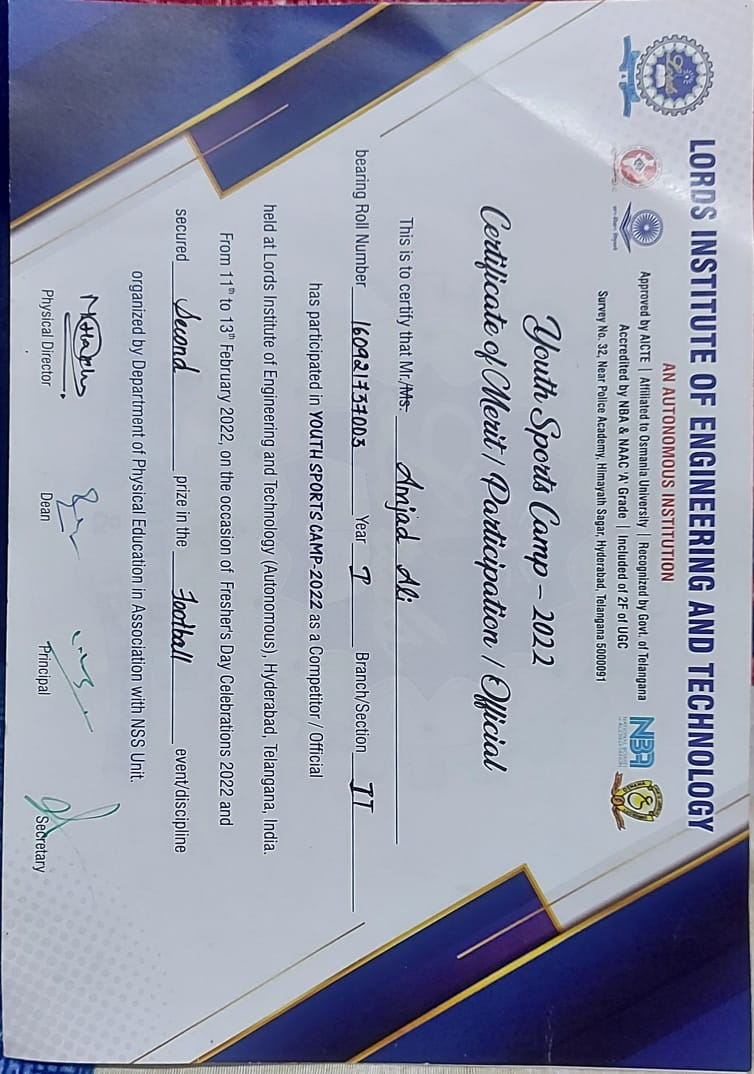 LORDS INSTITUTE OF ENGINEERING AND TECHNOLOGY
AN AUTONOMOUS INSTITUTION
Approved by AICTE | Affiliated to Osmania University | Recognized by Govt. of Telangana
Accredited by NBA & NAAC 'A' Grade | Included of 2F of UGC
Survey No. 32, Near Police Academy, Himayath Sagar, Hyderabad, Telangana 5000091
Lords
NBA
NATIONAL BOARD
of ACCREDITATION
Youth Sports Camp – 2022
Certificate of Merit / Participation / Official
This is to certify that Mr./Ms. Amjad Ali
bearing Roll Number 160921737003 Year I Branch/Section IT
has participated in YOUTH SPORTS CAMP-2022 as a Competitor / Official
held at Lords Institute of Engineering and Technology (Autonomous), Hyderabad, Telangana, India.
From 11th to 13th February 2022, on the occasion of Fresher's Day Celebrations 2022 and
secured Second prize in the Football event/discipline
organized by Department of Physical Education in Association with NSS Unit.
Physical Director Dean Principal Secretary